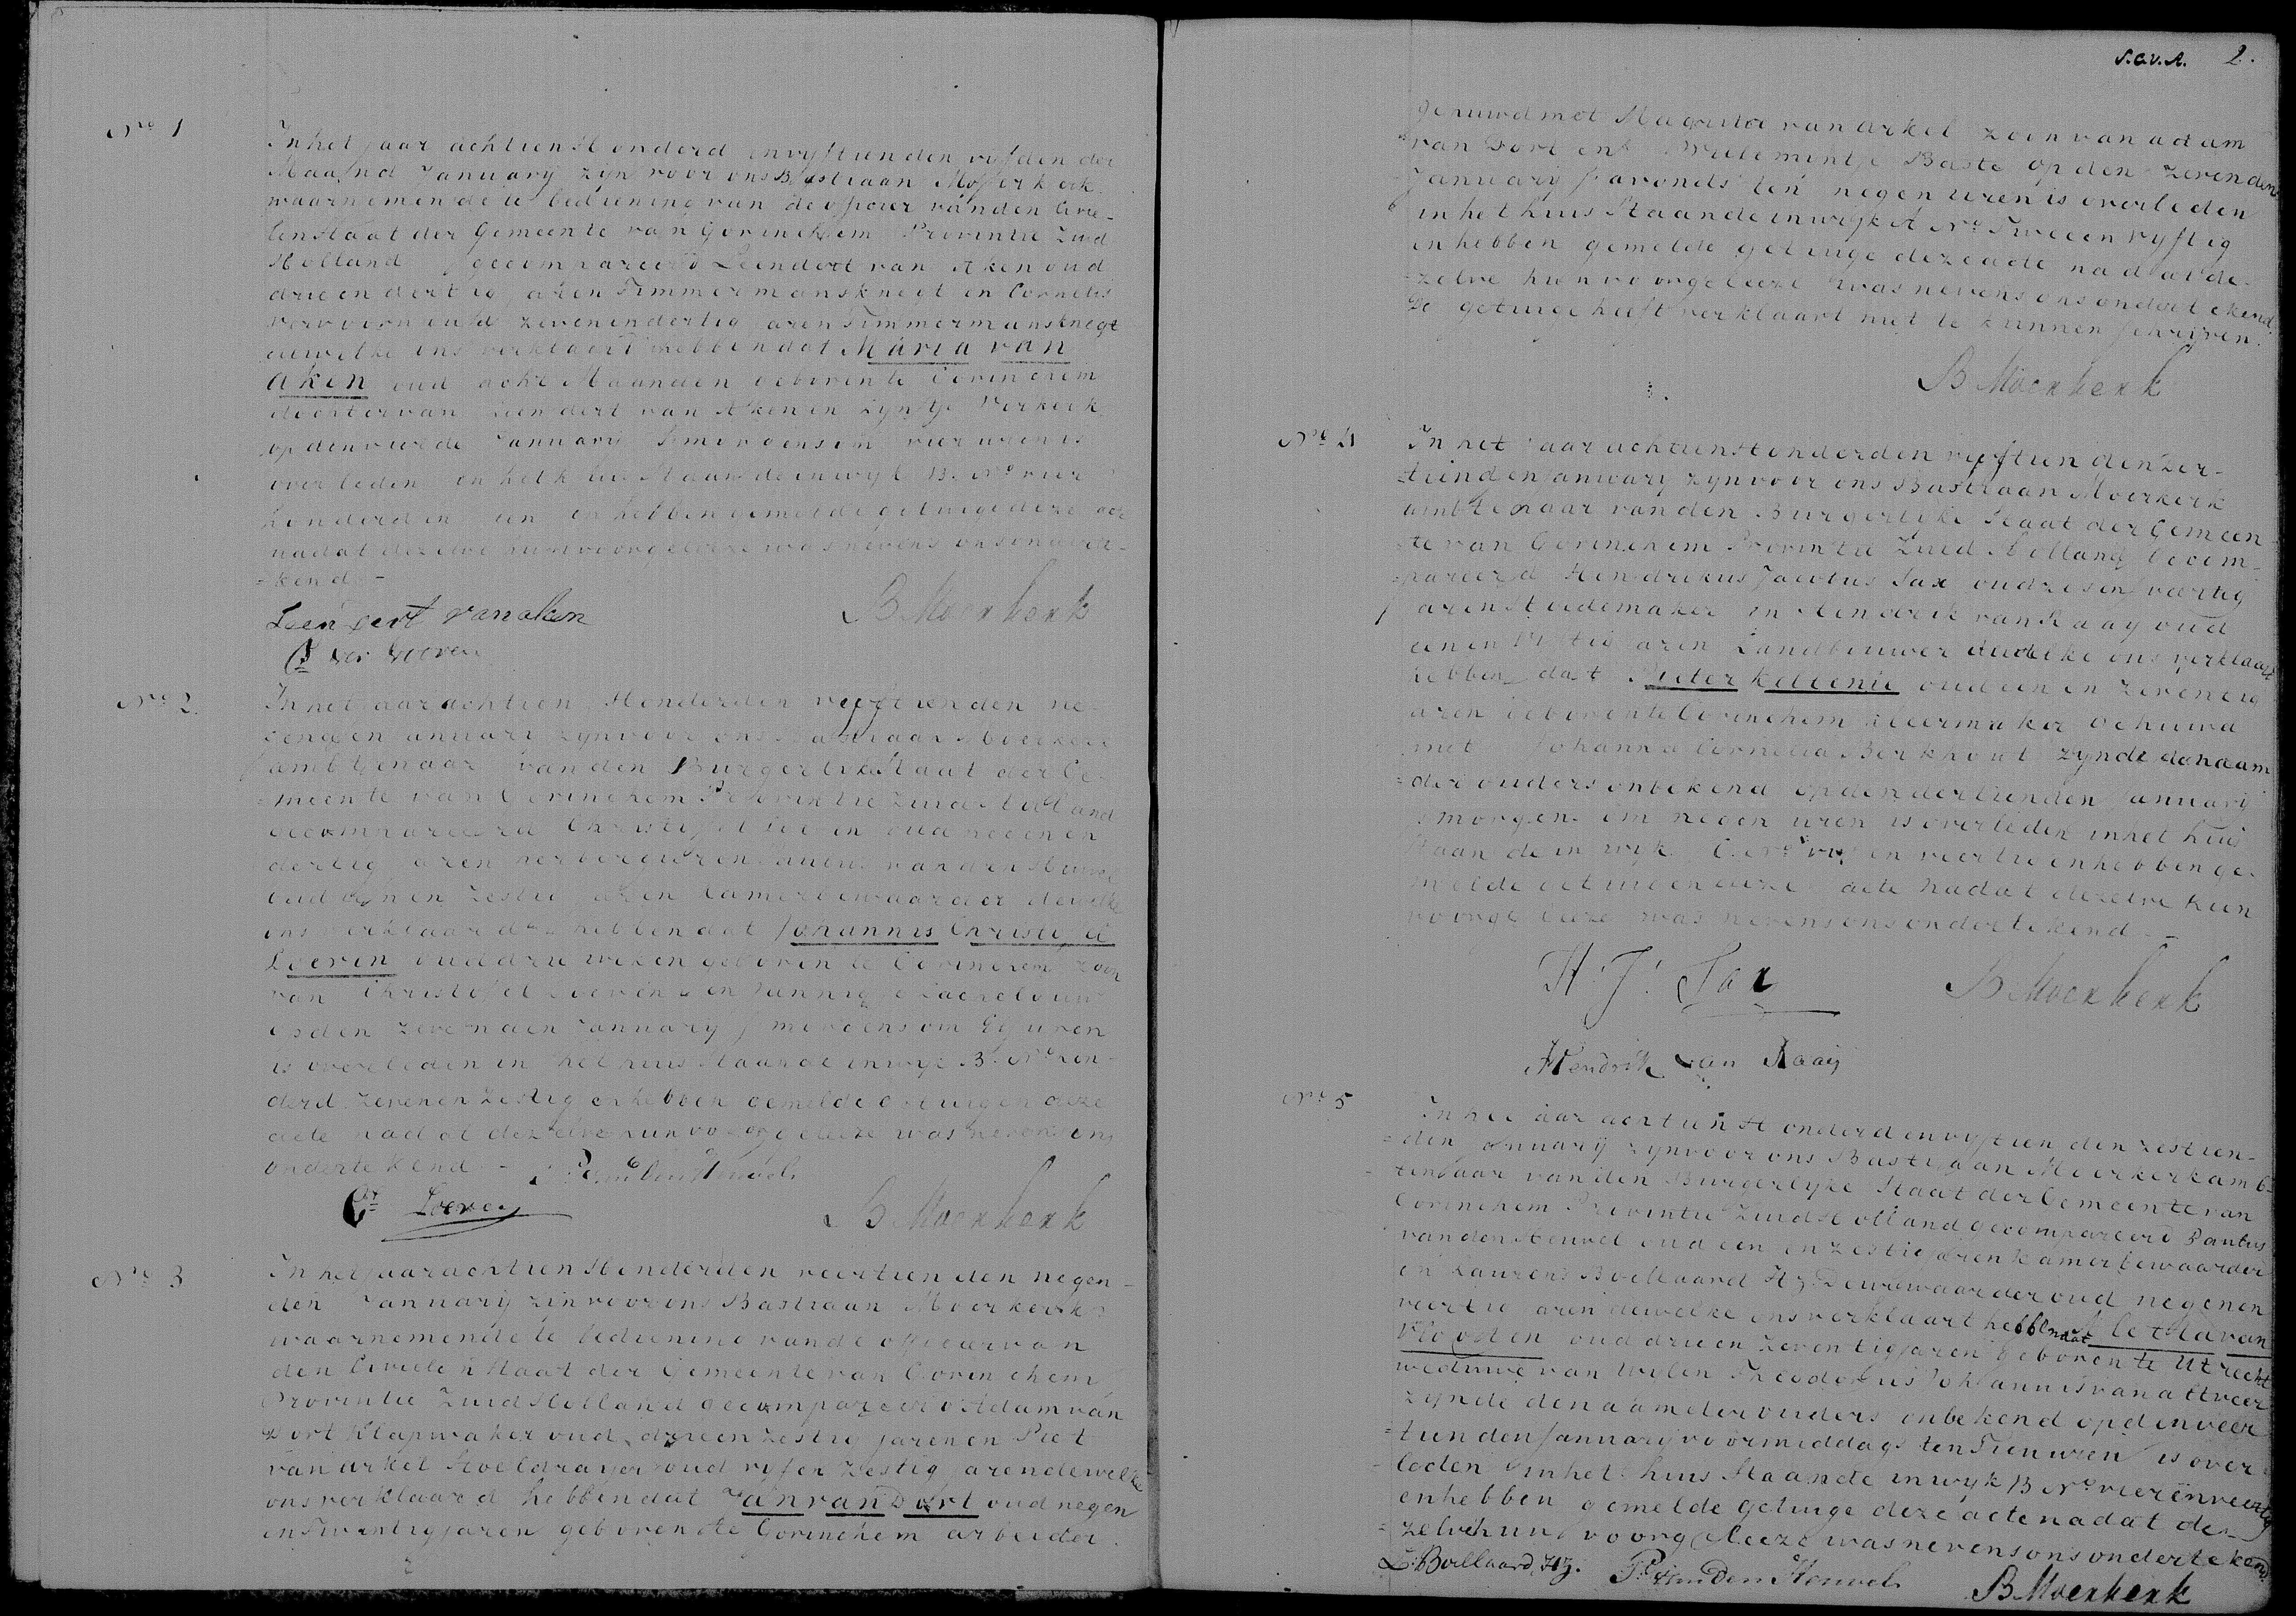 No 1
In het jaar achtien Honderd en vyftien den vyfden der
Maand January zyn voor ons Bastiaan Moerkerk
waarnemende te bediening van de officier van den Civie-
len Staat der Gemeente van Gorinchem Provintie Zuid
Holland gecompareerd Leendert van Aken oud
drie en dertig jaren Timmermansknegt en Cornelis
Verhoeven oud zeven en dertig jaren Timmermansknegt
dewelke ons verklaart hebben dat Maria van
Aken oud acht Maanden geboren te Gorinchem
dochter van Leendert van Aken en Lyntje Verkerk
op den vierde January smorgens om vier uren is
overleden in het huis Staande in wyk B. No vier
honderd en een en hebben gemelde getuige deze acte
nadat dezelve hun voorgeleeze was nevens ons onderte-
=kend -
Leendert van aken
B Moerkerk
C Verhoeven
No 2.
In het jaar achtien Honderd en vyftien den ne-
genden January zyn voor ons Bastiaan Moerkerk
ambtenaar van den Burgerlyke Staat der Ge-
=meente van Gorinchem Provintie Zuid Holland
gecompareerd Christoffel Loeven oud negen en
dertig jaren herbergier en Paulus van den Heuvel
oud een en zestig jaren Camerbewaarder dewelke
ons verklaard hebben dat Johannis Christoffel
Loeven oud drie weken geboren te Gorinchem zoon
van Christoffel Loeven en Jannigje
op den zevenden January smorgens om Elf uren
is overleden in het huis Staande in wyk B. No hon-
derd zeven en zestig en hebben gemelde getuigen deze
acte nadat dezelve hun voorgeleeze was nevens ons
ondertekend - P. van den Heuvel
Cr Loeven
B Moerkerk
No 3
In het jaar achtien Honderd en veertien den negen-
den January zyn voor ons Bastiaan Moerkerk
waarnemende te bediening van de officier van
den Civielen Staat der Gemeente van Gorinchem
Provintie Zuid Holland gecompareerd Adam van
Dort Klapwaker oud drie en zestig jaren en Piet
van Arkel Stoeldrayer oud vyf en zestig jaren dewelke
ons verklaard hebben dat Jan van Dort oud negen
en Twintig jaren geboren te Gorinchem arbeider
S.C.V.A. 2.
gehuwd met Magrita van Arkel zoon van adam
van Dort en Willemintje Baste op den zevenden
January savonds ten negen uren is overleden
in het huis Staande in wyk A No Twee en vyftig
en hebben gemelde getuige deze acte nadat de-
=zelve hun voorgeleeze was nevens ons ondertekend
De getuige heeft verklaart niet te kunnen schryven.
B Moerkerk
No 4
In het jaar achtien Honderd en vyftien den Veer-
=tienden January zyn voor ons Bastiaan Moerkerk
ambtenaar van den Burgerlyke Staat der Gemeen-
te van Gorinchem Provintie Zuid Holland Gecom-
=pareerd Hendrikus Jacobus Sax oud zes en veertig
jaren Hoedemaker en Hendrik van Raay oud
een en vyftig jaren Landbouwer dewelke ons verklaart
hebben dat Pieter Kellenie oud een en zeventig
jaren geboren te Gorinchem kleermaker gehuwd
met Johanna Cornelia Berkhout zynde de naam
=der ouders onbekend op den dertienden January
smorgens om negen uren is overleden in het huis
Staande in wyk C. No vyf en veertig en hebben ge-
melde getuigen deze acte nadat dezelve hun
voorgeleeze was nevens ons ondertekend -
H. J. Sax
B Moerkerk
Hendrik van Raaij
No 5
In het jaar achtien Honderd en vyftien den zestien-
=den January zyn voor ons Bastiaan Moerkerk amb-
tenaar van den Burgerlyke Staat der Gemeente van
Gorinchem Provintie Zuid Holland gecompareerd Paulus
van den Heuvel oud een en zestig jaren kamerbewaarder
en Laurens Boellaard Hz. Deurwaarder oud negen en
veertig jaren dewelke ons verklaart hebben dat Aletta van
Vlooten oud drie en zeventig jaren geboren te Utrecht
weduwe van wylen Theodorus Johannis van Attveer
zynde de naam der ouders onbekend op den veer-
=tienden January voormiddags ten Tien uren is over-
leden in het huis Staande in wyk B No vier en veertig
en hebben gemelde getuige deze acte nadat de-
=zelve hun voorgeleeze was nevens ons ondertekend
L. Boellaard, Hz. P. van Den Heuvel
B Moerkerk